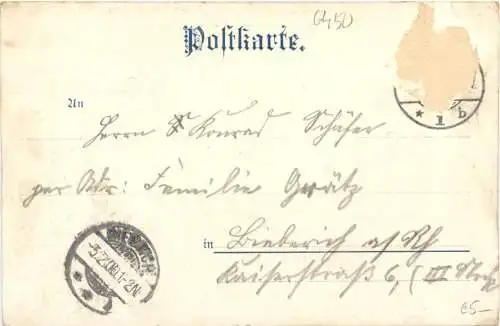 6450
Postkarte.
An
Herrn Konrad Schäfer
per Adr: Familie Grätz
in Bieberich a/Rh
Kaiserstraß 6, (III Stock
* 1 b
1-2N
€5—